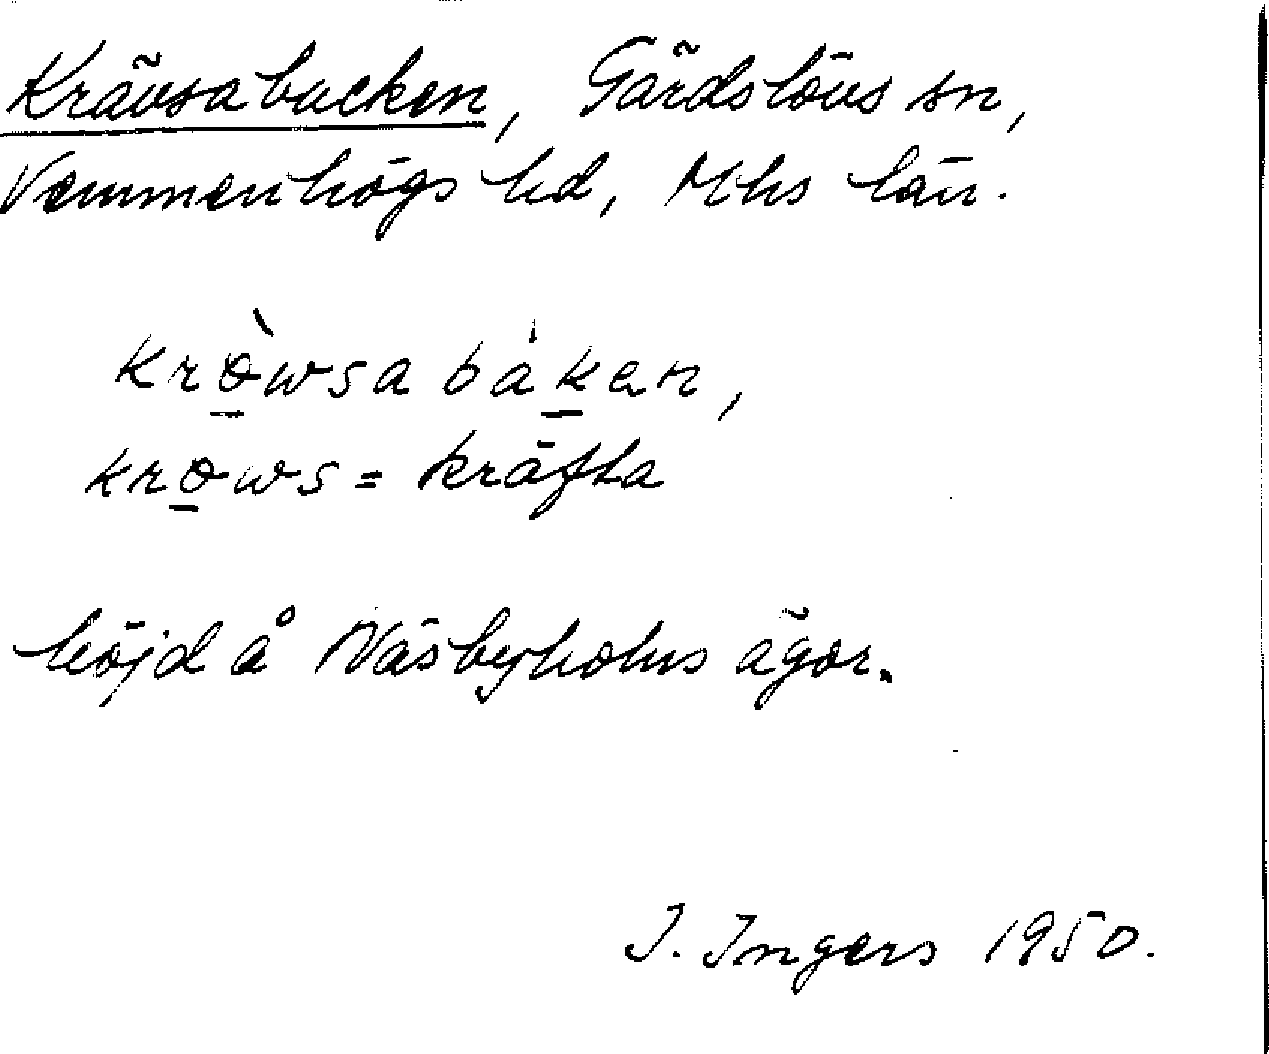 Krävsabacken, Gärdslövs sn,
Vemmenhögs hd, Mhs län.
kròwsabáken,
krows = kräfta
höjd å Näsbyholms ägor.
I. Ingers 1950.